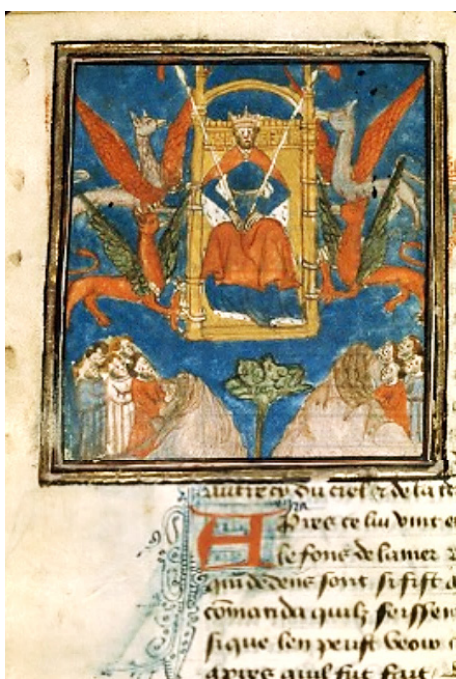 autre cy du ciel & de la te
Apres ce luy vint e
le fons de la mer
qui dedens sont si fist a
cōmanda quilz feissen
si que len peust veow
apres quil fut fait